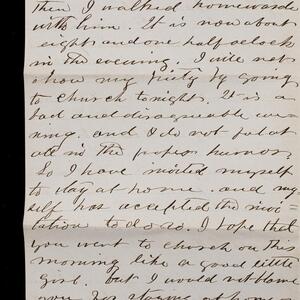 then I walked homewards
with him. It is now about
eight and one half oclock
in the evening. I will not
show my piety by going
to church tonight. It is a
bad and disagreeable eve
ning. and I do not feel at
all in the proper humor.
So I have invited myself
to stay at home. and my
self has accepted the invi
tation to do so. I hope that
you went to church on this
morning like a good little
Girl. but I would not blame
you for staying at home